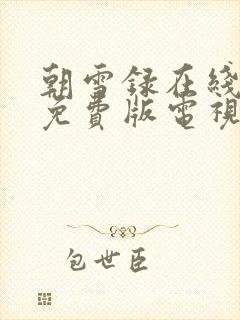 朝雪録在綫
免費版電視
包世臣